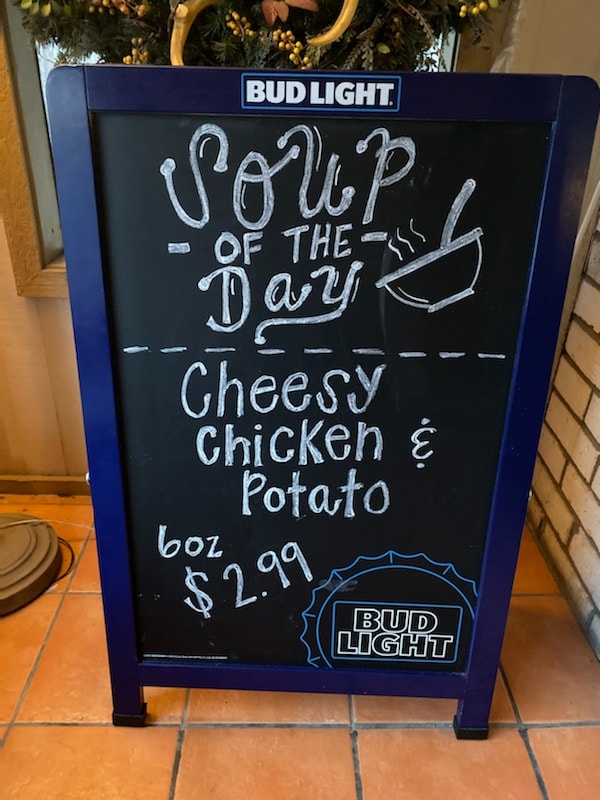 BUD LIGHT.
SOUP
- OF THE -
Day
Cheesy
Chicken &
Potato
6oz
$2.99
BUD
LIGHT